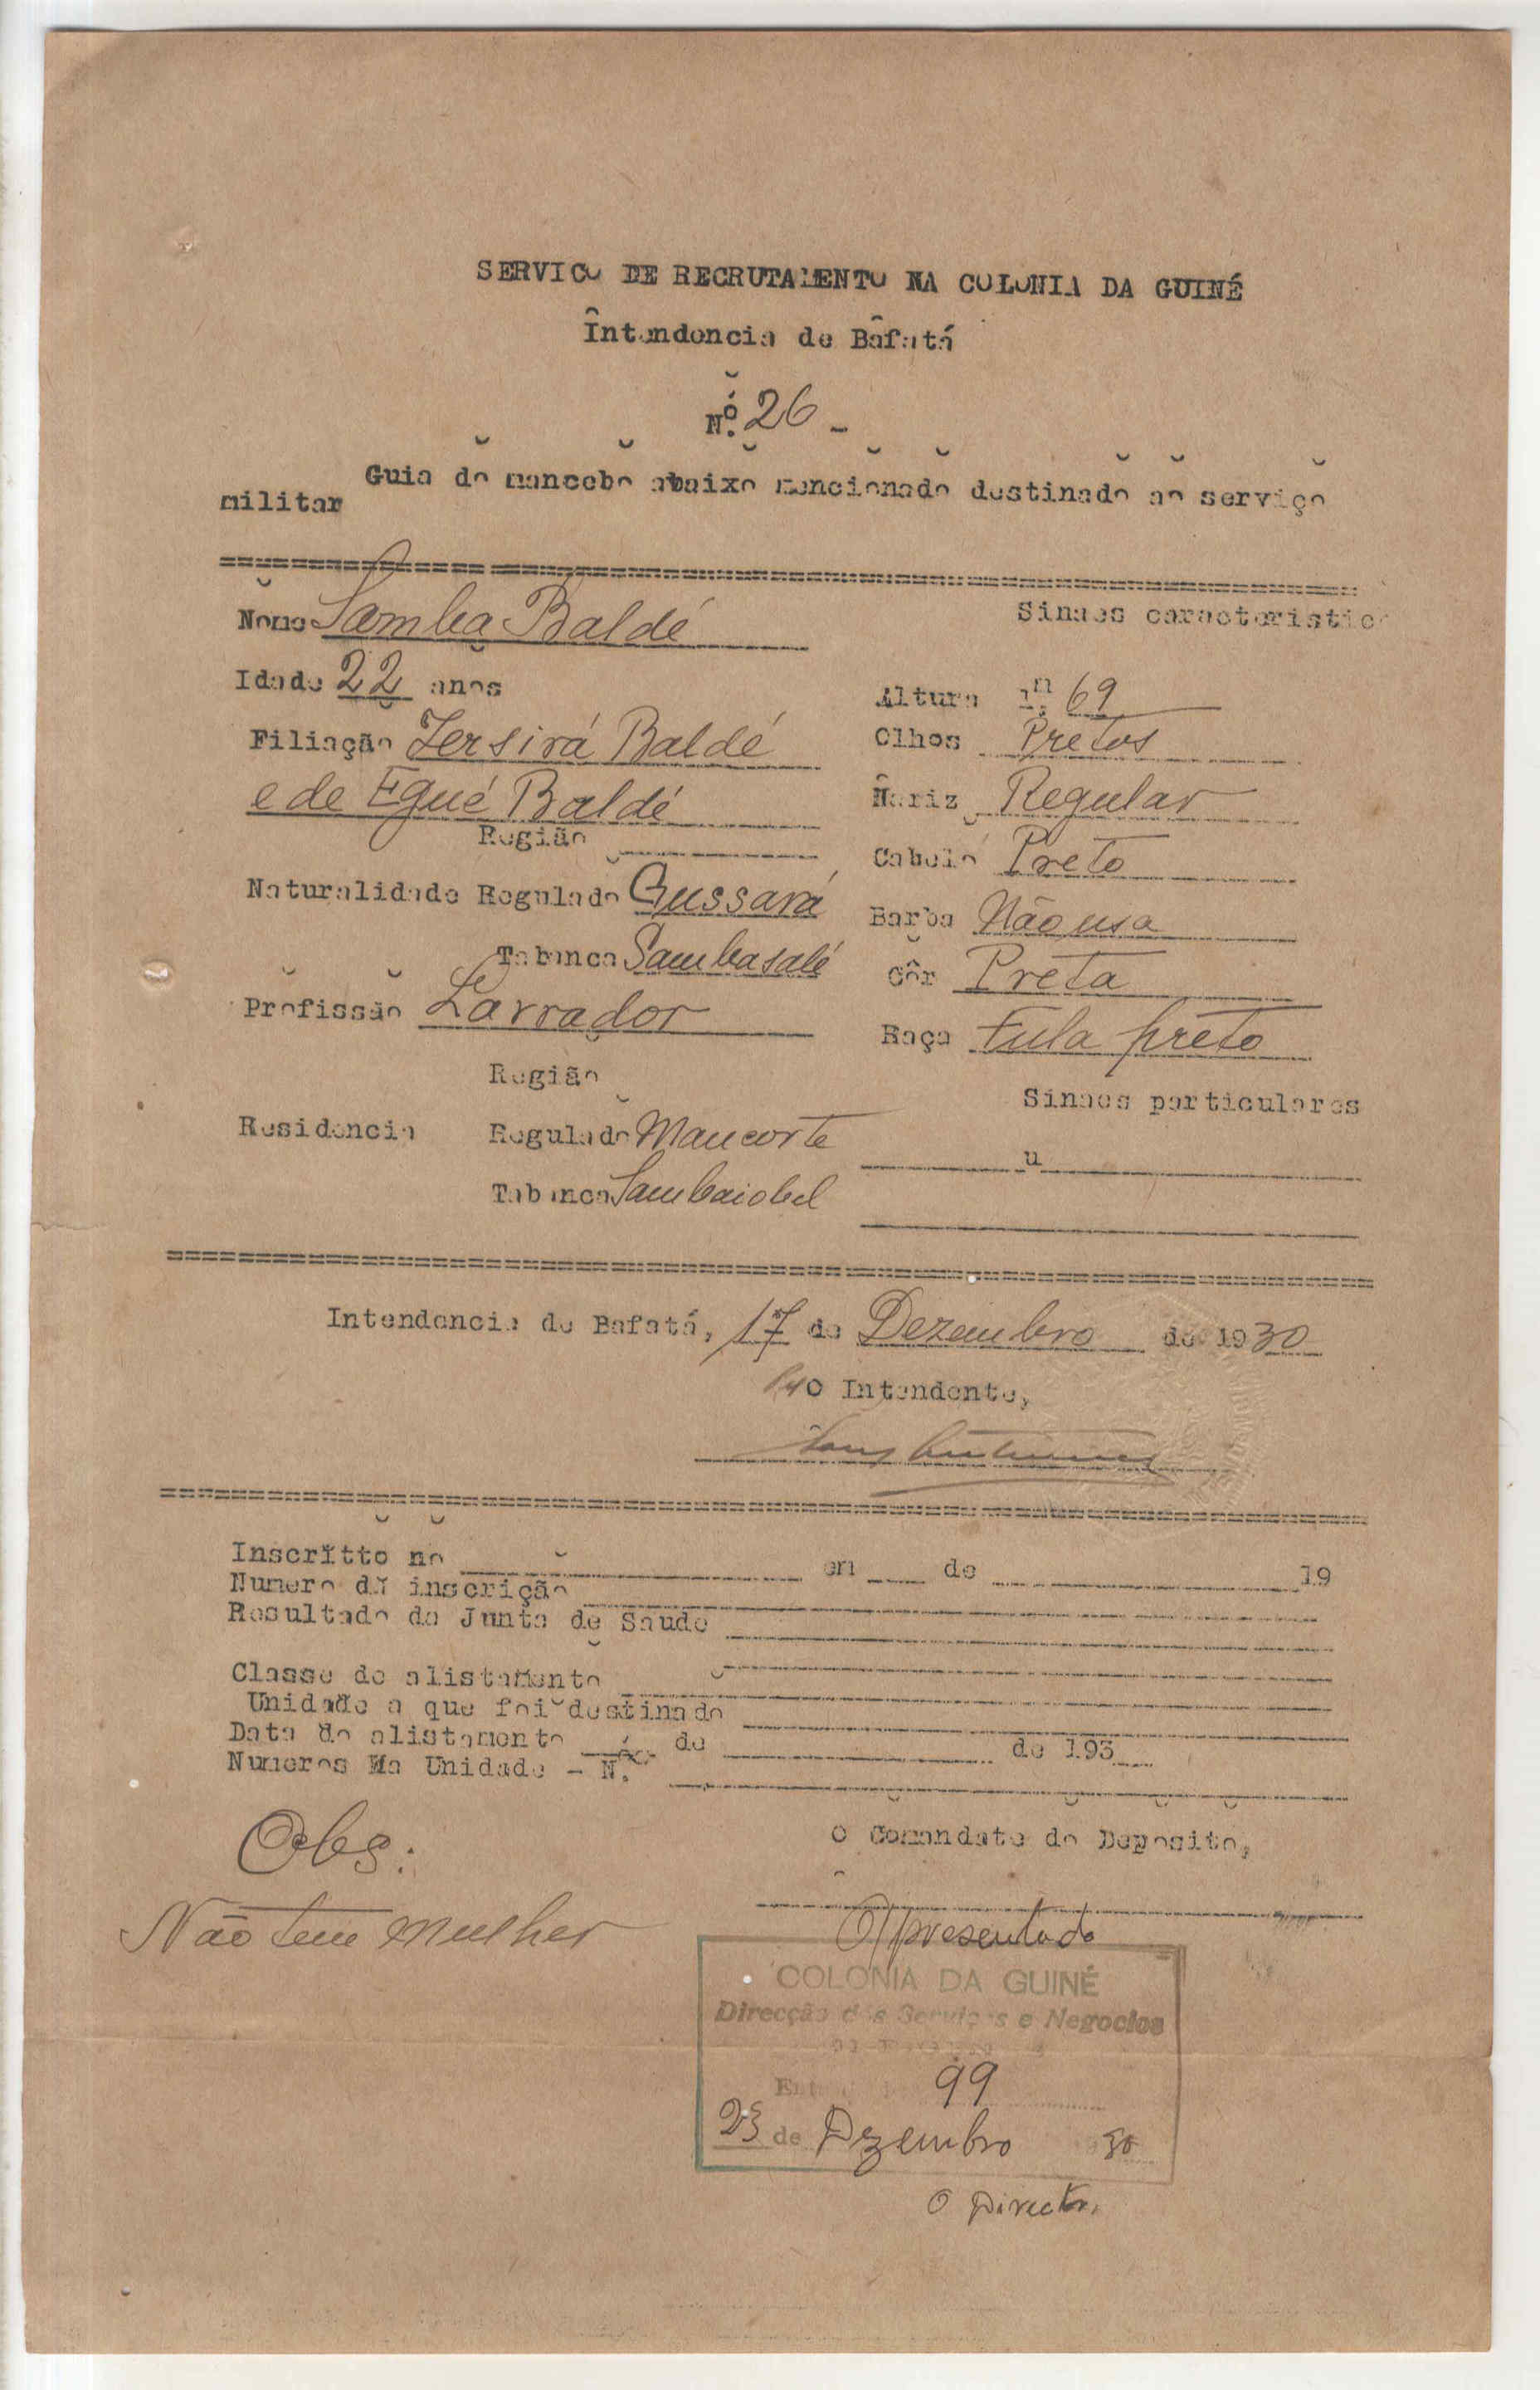 SERVICO DE RECRUTAMENTO NA COLONIA DA GUINÉ
Intendencia de Bafatá
Nº. 26 -
Guia do mancebo abaixo mencionado destinado ao serviço
militar
Nome Samba Baldé
Sinaes caracteristic
Idade 22 anos
Altura 1,m 69
Filiação Tersirá Baldé
Olhos Pretos
e de Egué Baldé
Nariz Regular
Região
Cabelo Preto
Naturalidade Regulado Gussará
Barba Não usa
Tabanca Sambasalé
Côr Preta
Profissão Lavrador
Raça Fula preto
Região
Sinaes particulares
Residencia Regulado Mancorte
u
Tabanca Sambaiobel
Intendencia de Bafatá, 17 de Dezembro de 1930
O Intendente,
Inscritto no em de 19
Numero da inscrição
Resultado da Junta de Saude
Classe de alistamento
Unidade a que foi destinado
Data do alistamento de de 193
Numeros Na Unidade - N.
Obs:
O Comandate do Deposito,
Não tem Mulher
Apresentado
COLONIA DA GUINÉ
Direcção dos Serviços e Negocios
99
23 de Dezembro 30
O Director,